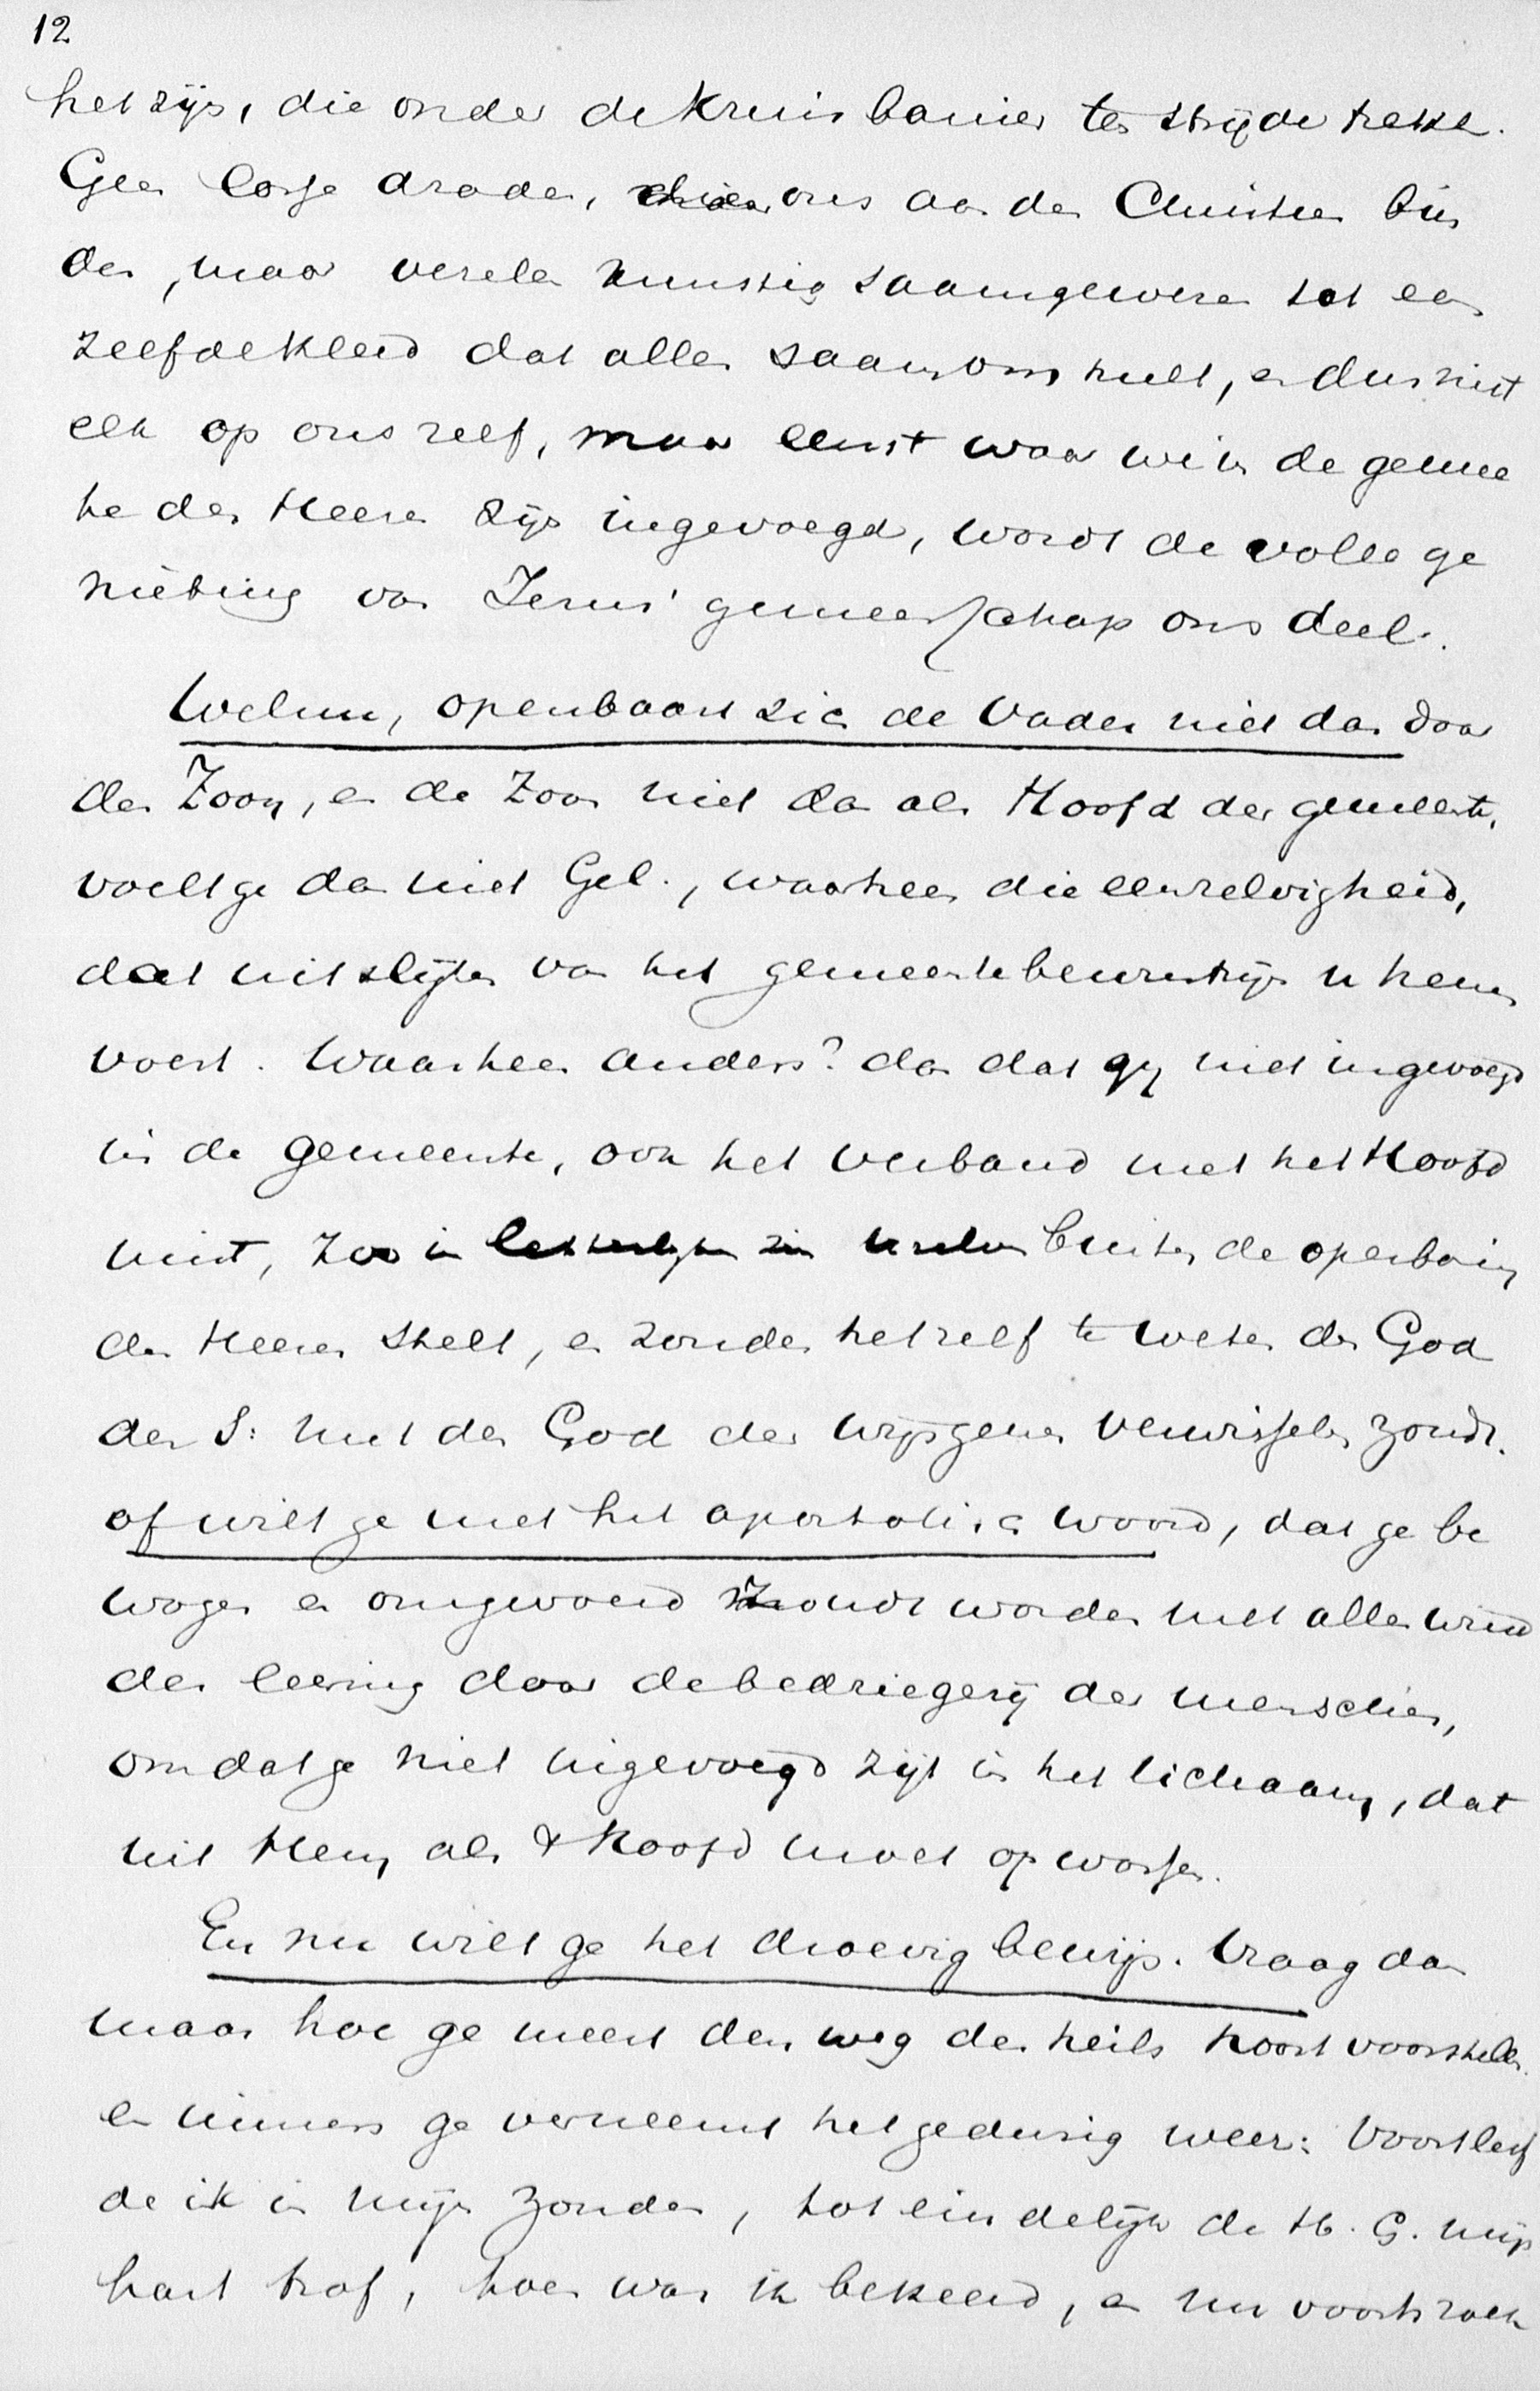 12
het zijn, die onder de Kruisbanier ten strijde trekt.
Geen losse draden, die ons aan den Christen bin
den, maar vezelen kunstig saamgeweven tot een
zelfde kleed dat allen saam omhult, en dus niet
elk op ons zelf, maar eerst waar we in de gemee
te des Heeren zijn ingevoegd, wordt de volle ge
nieting van Jezus' gemeenschap ons deel.
Welnu, openbaart zich de Vader niet dan door
den Zoon, en de Zoon niet dan als Hoofd der gemeente,
voelt ge dan niet Gel., waarheen die eenzelvigheid,
dat uitslijten van het gemeentebewustzijn u henen
voert. Waarheen anders? dan dat gij niet ingevoegd
in de gemeente, ook het verband met het Hoofd
mist, zoo in letterlijken zin buiten de openbaring
des Heeren stelt, en zonder het zelf te weten den God
der S: met den God der wijsgeren verwisselen zoudt.
of wilt ge met het apostolisch woord, dat ge be
wogen en omgevoerd zoudt worden met allen wind
der leering door de bedriegerij der menschen,
omdat ge niet ingevoegd zijt in het lichaam, dat
uit Hem, als 't Hoofd moet opwassen.
En nu wilt ge het droevig bewijs. Vraag dan
maar hoe ge meest den weg des heils hoort voorstellen.
en immers ge verneemt het gedurig weer: Voortleef
de ik in mijn zonden, tot eindelijk de H. G. mijn
hart trof, toen was ik bekeerd, en nu voorts zoek